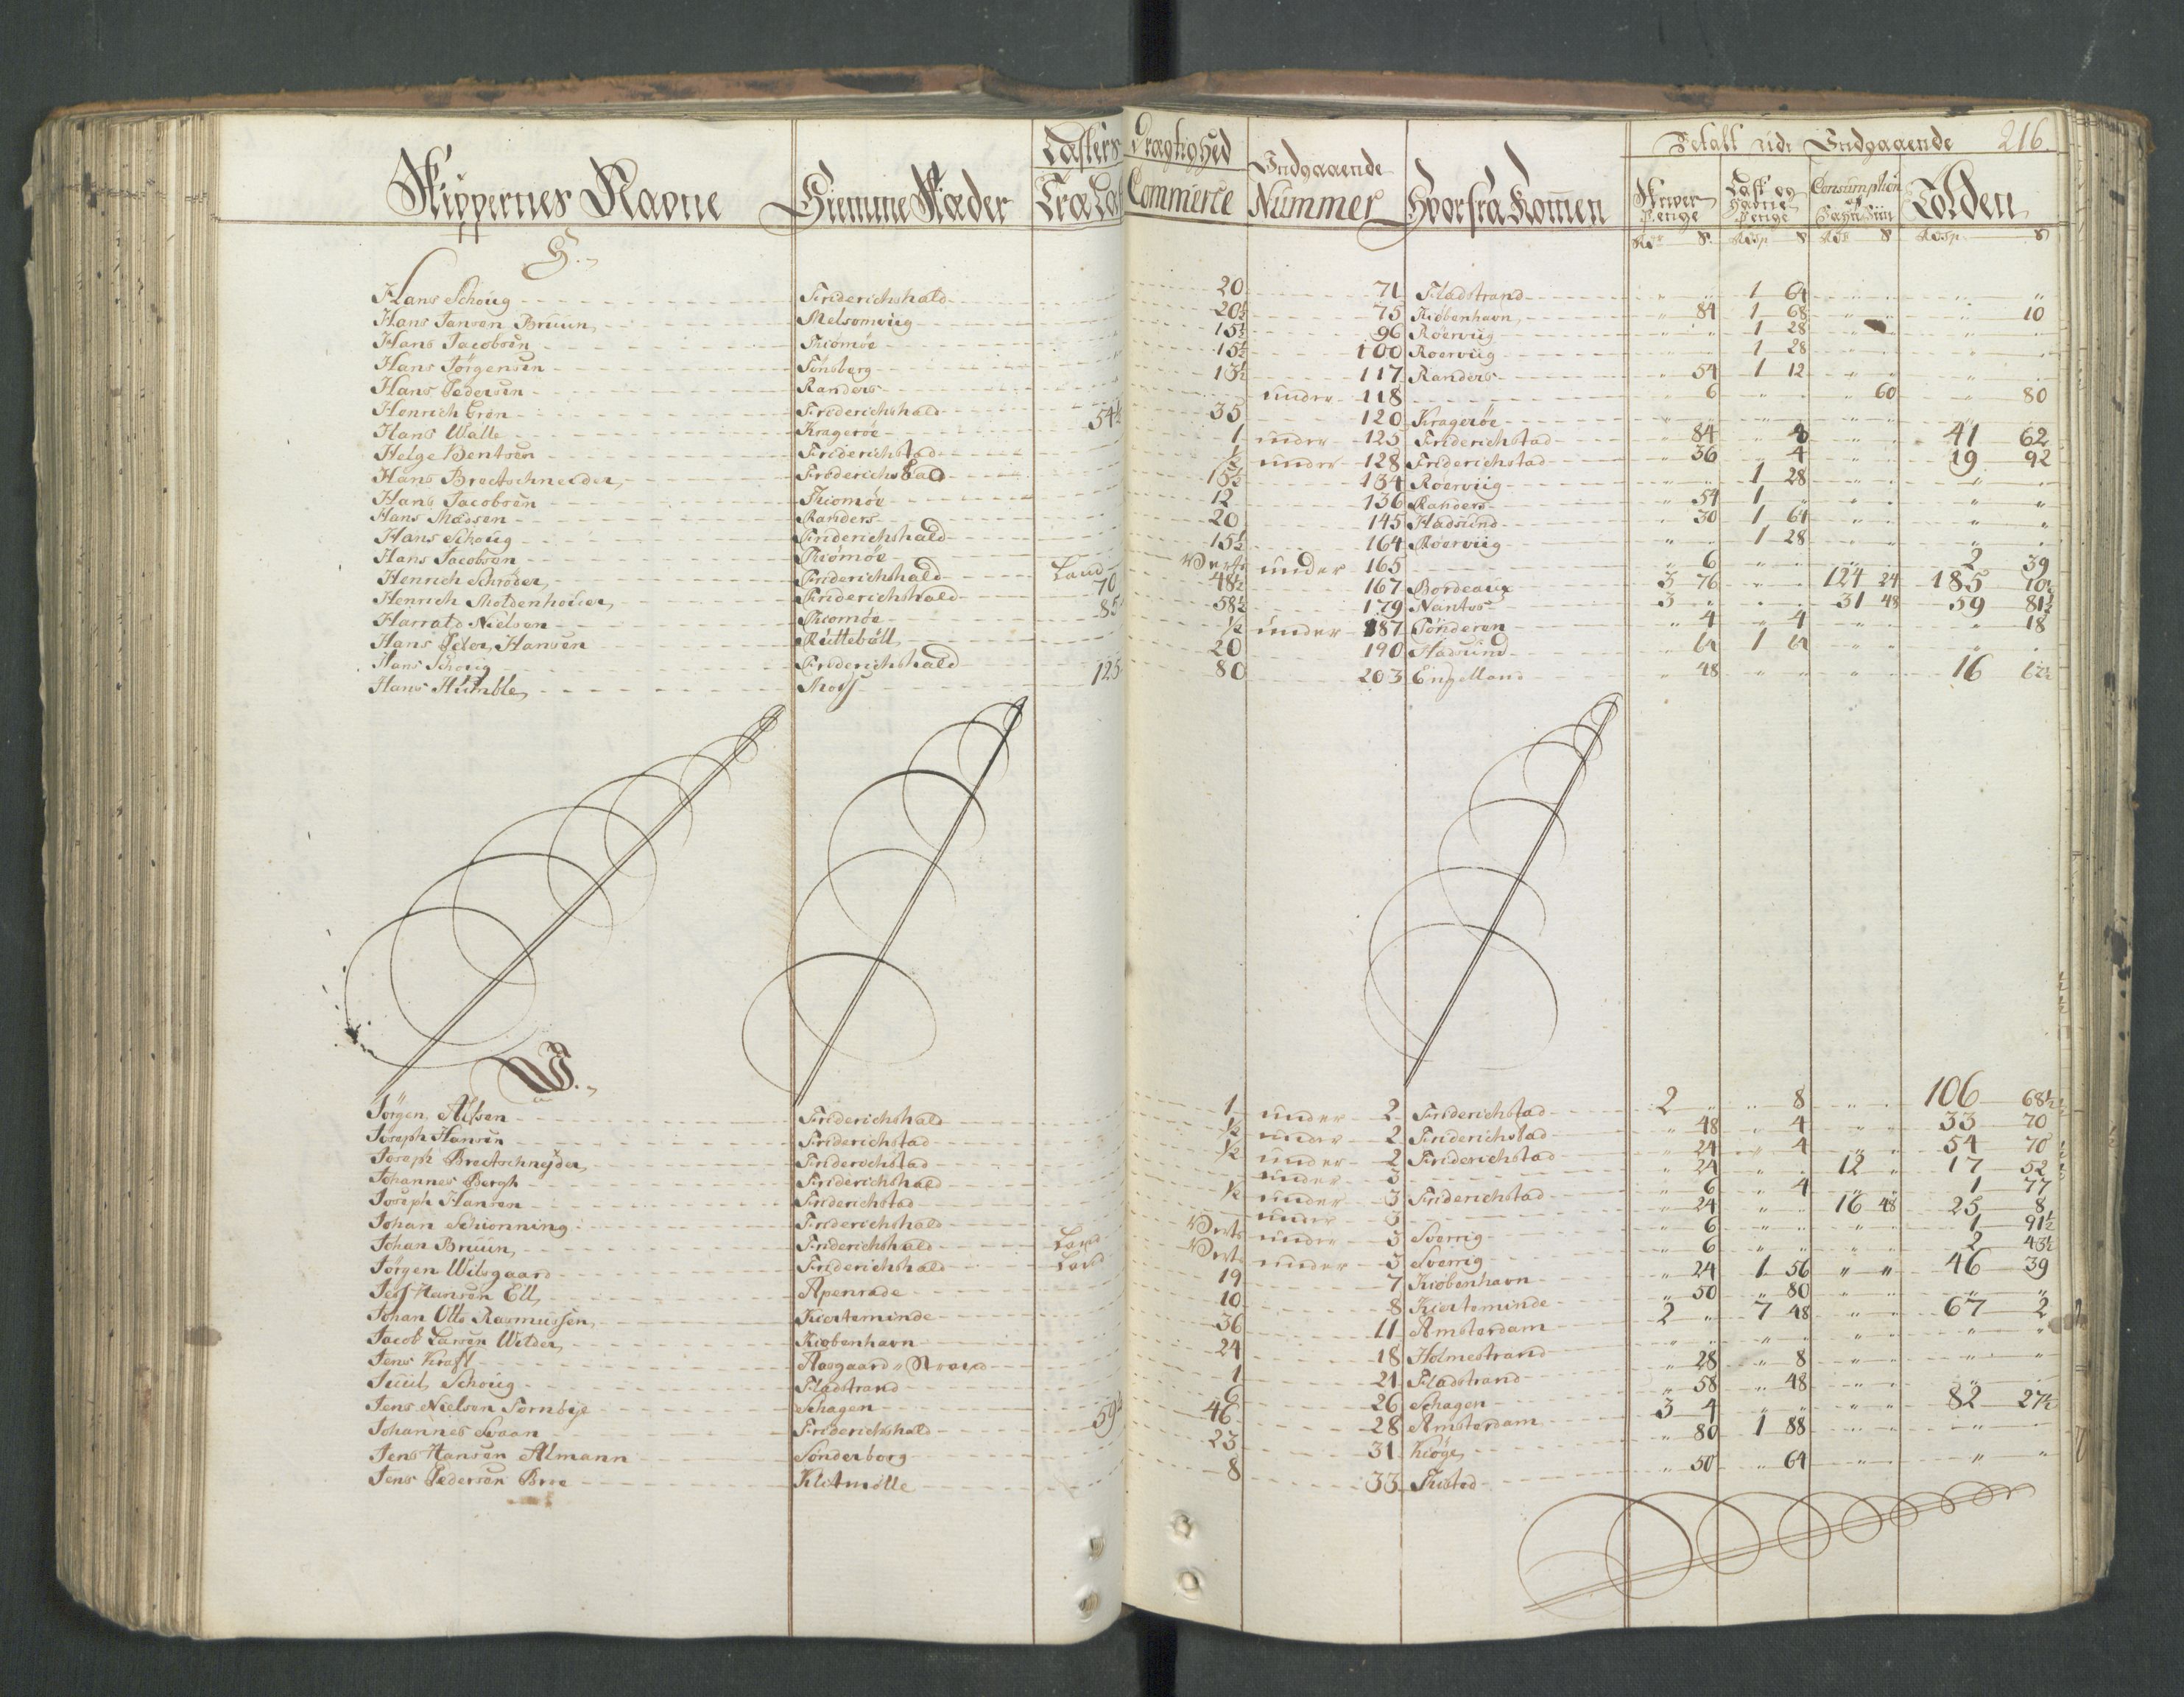 Skippernes Navne Hiemme Stæder Læsters Dragtighed Træ Commerce Indgaaende Nummer Hvorfra Kommen Betalt udi Indgaaende 216.
Skriver Penge Last og Havne Penge Consumption Tolden
H.
Hans Schoug Friderichshald 20 71 Fladstrand " " 1 64 " " " "
Hans Jansen Bruun Melsomviig 20½ 75 Kiøbenhavn " 84 1 68 " " " 10
Hans Jacobsen Thiømøe 15½ 96 Röerviig " " 1 28 " " " "
Hans Jørgensen Tønsberg 15½ 100 Roerviig " " 1 28 " " " "
Hans Pedersen Randers 13½ 117 Randers " 54 1 12 " " " "
Henrich Grøn Friderichshald under 118 " 6 " " " 60 " 80
Hans Walle Kragerøe 54½ 35 120 Kragerøe " " " " " " " "
Helge Bentsen Friderichstad 1 under 125 Friderichstad " 84 " 8 " " 41 62
Hans Bretschneider Friderichstad ½ under 128 Friderichstad " 36 " 4 " " 19 92
Hans Jacobsen Thiomøe 15½ 134 Röerviig " " 1 28 " " " "
Hans Madsen Randers 12 136 Randers " 54 1 " " " " "
Hans Schoug Friderichshald 20 145 Hadsund " 30 1 64 " " " "
Hans Jacobsen Thiømøe 15½ 164 Röerviig " " 1 28 " " " "
Henrich Schrøder Friderichshald Land Verts under 165 " 6 " " " " 2 39
Henrich Moldenhouer Friderichshald 70 48½ 167 Bordeaux 3 76 " " 124 24 185 10½
Harrald Nielsen Thiomøe 85 58½ 179 Nantes 3 " " " 31 48 59 81½
Hans Peter Hansen Ruttebøll ½ under 187 Tønderen " 4 " 4 " " " 18
Hans Schoug Friderichshald 20 190 Hadsund " 64 1 64 " " " "
Hans Humble Moss 125 80 203 Engelland " 48 " " " " 16 62½
J.
Jørgen Alsen Friderichshald 1 under 2 Friderichstad 2 " " 8 " " 106 68½
Joseph Hansen Friderichstad ½ under 2 Friderichstad " 48 " 4 " " 33 70
Joseph Bretschneider Friderichstad ½ under 2 Friderichstad " 24 " 4 " " 54 70
Johannes Bergh Friderichshald under 3 " 24 " " 12 " 17 52
Joseph Hansen Friderichstad ½ under 3 Friderichstad " 6 " 4 " " 1 77
Johan Schiønning Friderichshald under 3 " 24 " " 16 48 25 8
Johan Bruun Friderichshald Land Verts under 3 Sverrig " 6 " " " " 1 91½
Jørgen Wilsgaard Friderichshald Land Verts under 3 Sverrig " 6 " " " " 2 43½
Jess Hansen Ell Apenrade 19 7 Kiøbenhavn " 24 1 56 " " 46 39
Johan Otto Rasmussen Kierteminde 10 8 Kierteminde " 50 " 80 " " " "
Jacob Larsen Wilder Kiøbenhavn 36 11 Amsterdam 2 " 7 48 " " 67 2
Jens Kraft Aasgaard Strand 24 18 Holmestrand " " " " " " " "
Juul Schoug Fladstrand 1 21 Fladstrand " 28 " 8 " " " "
Jens Nielsen Tornbye Schagen 6 26 Schagen " 58 " 48 " " " "
Johannes Svaan Friderichshald 59½ 46 28 Amsterdam 3 4 " " " " 82 27½
Jens Hansen Almann Sønderborg 23 31 Kiöge " 80 1 88 " " " "
Jens Pedersen Broe Klitmølle 8 33 Thisted " 50 " 64 " " " "